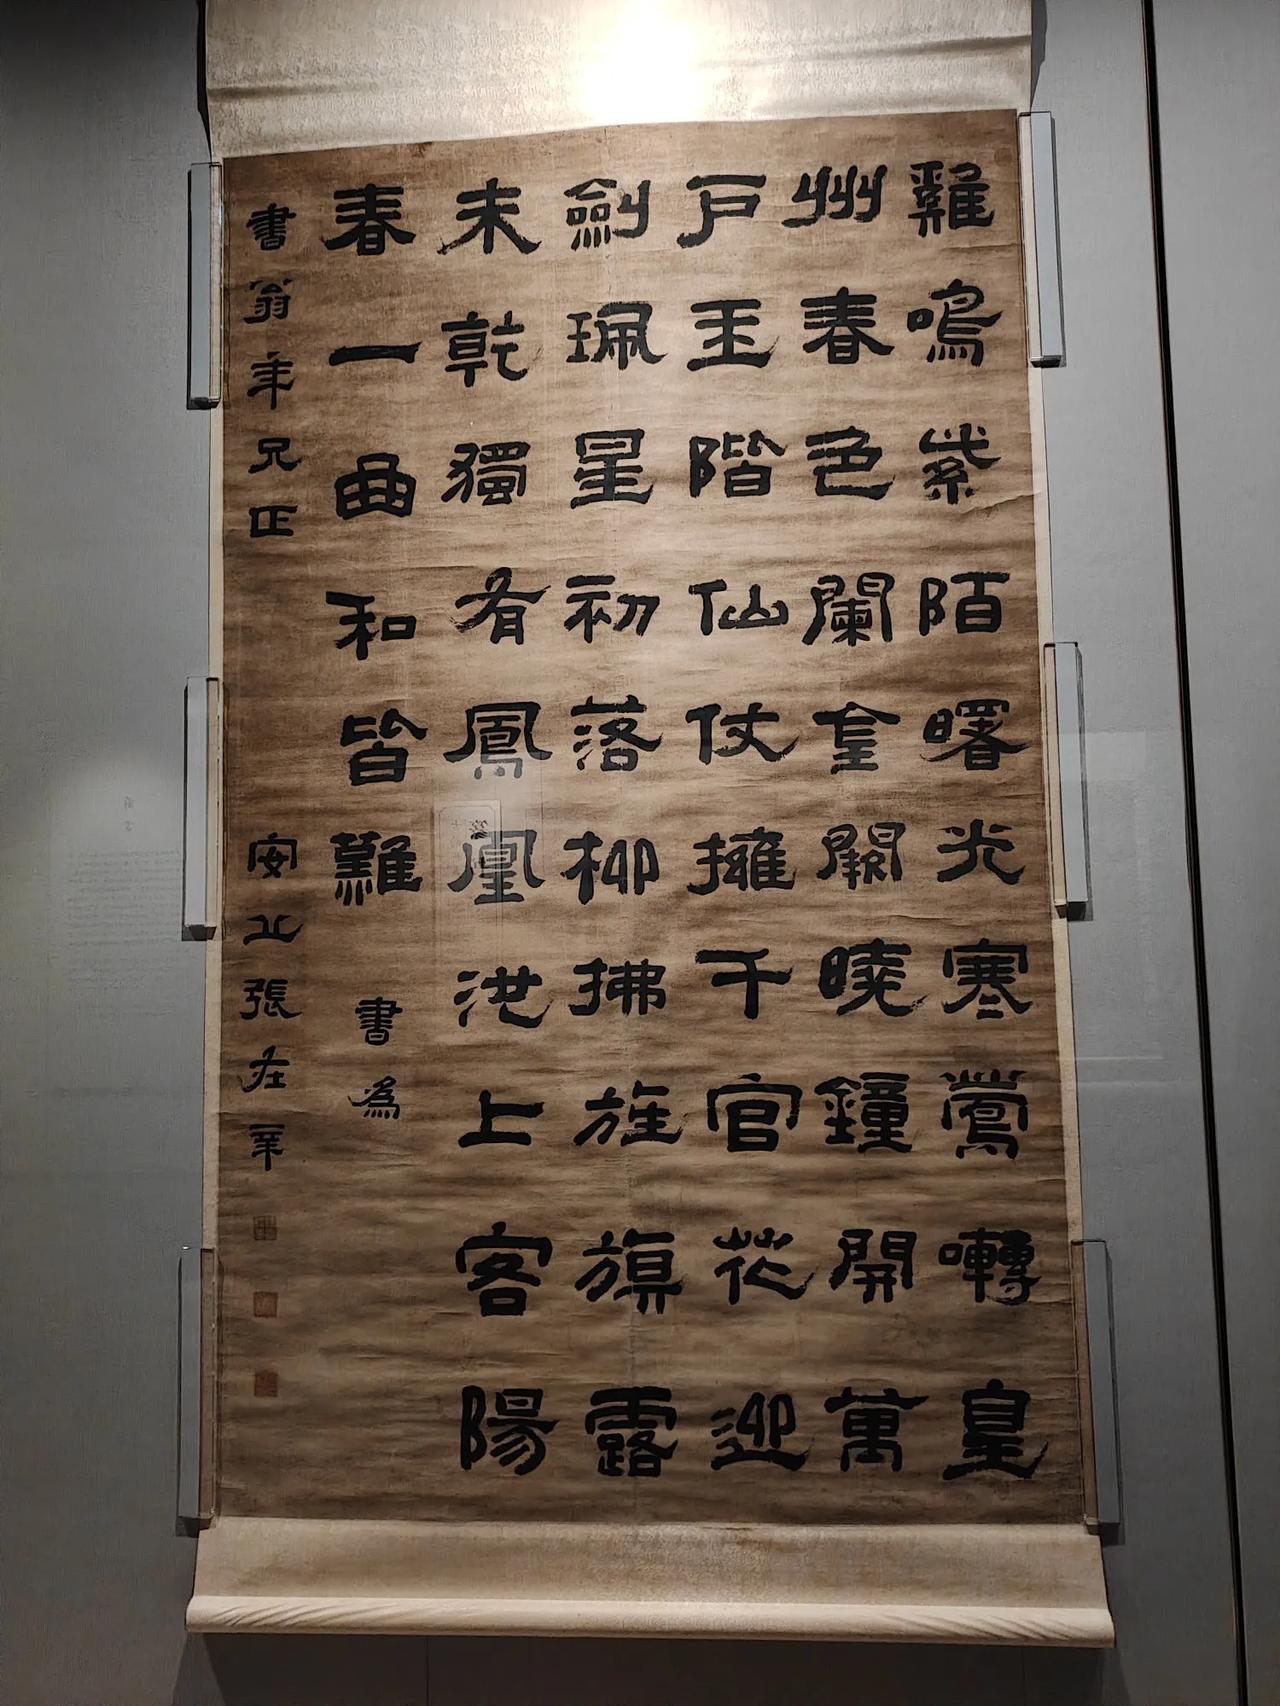 雞鳴紫陌曙光寒鶯囀皇
州春色闌金闕曉鐘開萬
戶玉階仙仗擁千官花迎
劍珮星初落柳拂旌旗露
未乾獨有鳳凰池上客陽
春一曲和皆難 書為
書翁年兄正 安丘張在辛